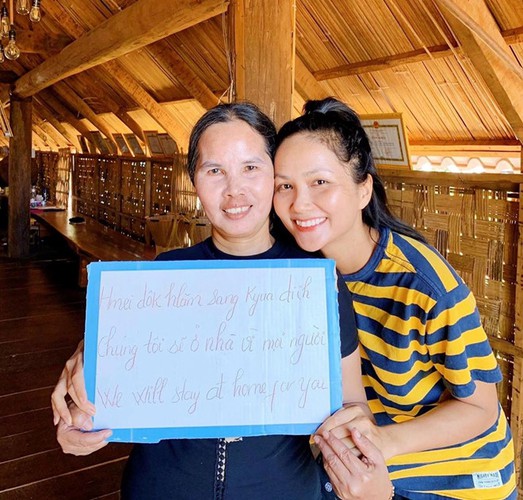 Hmei dôk hlăm sang kyua dịch
Chúng tôi sẽ ở nhà vì mọi người
We will stay at home for you